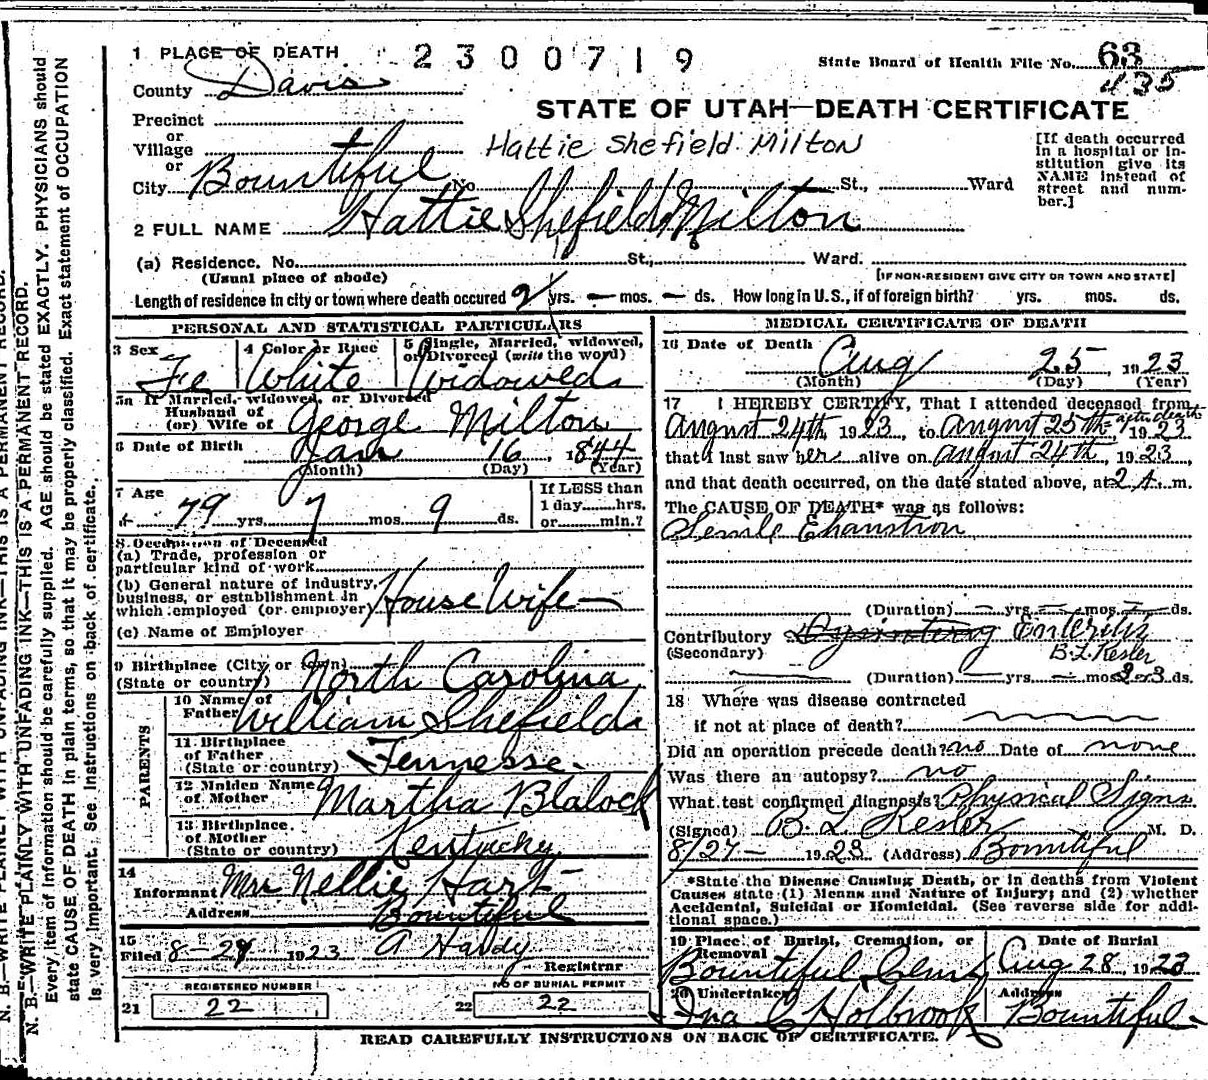 1 PLACE OF DEATH
2300719
State Board of Health File No. 63
435
County Davis
STATE OF UTAH—DEATH CERTIFICATE
Precinct
or
Village
or
City Bountiful No. St., Ward
Hattie Shefield Milton
[If death occurred in a hospital or institution give its NAME instead of street and number.]
2 FULL NAME Hattie Shefield Milton
(a) Residence. No. St., Ward.
(Usual place of abode)
[IF NON-RESIDENT GIVE CITY OR TOWN AND STATE]
Length of residence in city or town where death occured 2 yrs. — mos. — ds. How long in U.S., if of foreign birth? yrs. mos. ds.
PERSONAL AND STATISTICAL PARTICULARS
3 Sex Fe
4 Color or Race White
5 Single, Married, widowed, or Divorced (write the word) Widowed
5a If Married, widowed, or Divorced
Husband of
(or) Wife of George Milton
6 Date of Birth Jan 16, 1844
(Month) (Day) (Year)
7 Age 79 yrs. 7 mos. 9 ds.
If LESS than
1 day hrs.
or min.?
8 Occupation of Deceased
(a) Trade, profession or
particular kind of work
(b) General nature of industry,
business, or establishment in
which employed (or employer) House Wife
(c) Name of Employer
9 Birthplace (City or town)
(State or country) North Carolina
PARENTS
10 Name of
Father William Shefield
11 Birthplace
of Father
(State or country) Tennesse
12 Maiden Name
of Mother Martha Blalock
13 Birthplace
of Mother
(State or country) Kentucky
14
Informant Mrs Nellie Hart
Address Bountiful
15
Filed 8-27 1923 A Hardy
Registrar
REGISTERED NUMBER
21 22
NO OF BURIAL PERMIT
22 22
MEDICAL CERTIFICATE OF DEATH
16 Date of Death
Aug 25, 1923
(Month) (Day) (Year)
17 I HEREBY CERTIFY, That I attended deceased from
August 24th, 1923, to August 25th after death, 1923
that I last saw her alive on August 24th, 1923,
and that death occurred, on the date stated above, at 2 A. m.
The CAUSE OF DEATH* was as follows:
Senile Ehaustion
(Duration) — yrs. — mos. — ds.
Contributory Dysintery Enteritis
(Secondary) B.L. Kesler
(Duration) — yrs. — mos. 2-3 ds.
18 Where was disease contracted
if not at place of death?
Did an operation precede death? no Date of none
Was there an autopsy? no
What test confirmed diagnosis? Physical Signs
(Signed) B. L. Kesler M. D.
8/27- 1923 (Address) Bountiful
*State the Disease Causing Death, or in deaths from Violent
Causes state (1) Means and Nature of Injury; and (2) whether
Accidental, Suicidal or Homicidal. (See reverse side for additional space.)
19 Place of Burial, Cremation, or Removal
Bountiful Cem
Date of Burial
Aug 28, 1923
20 Undertaker
Ina C Holbrook
Address
Bountiful
READ CAREFULLY INSTRUCTIONS ON BACK OF CERTIFICATE.
N. B.—WRITE PLAINLY WITH UNFADING INK—THIS IS A PERMANENT RECORD.
N. B.—WRITE PLAINLY WITH UNFADING INK—THIS IS A PERMANENT RECORD.
Every item of information should be carefully supplied. AGE should be stated EXACTLY. PHYSICIANS should
state CAUSE OF DEATH in plain terms, so that it may be properly classified. Exact statement of OCCUPATION
is very important. See instructions on back of certificate.